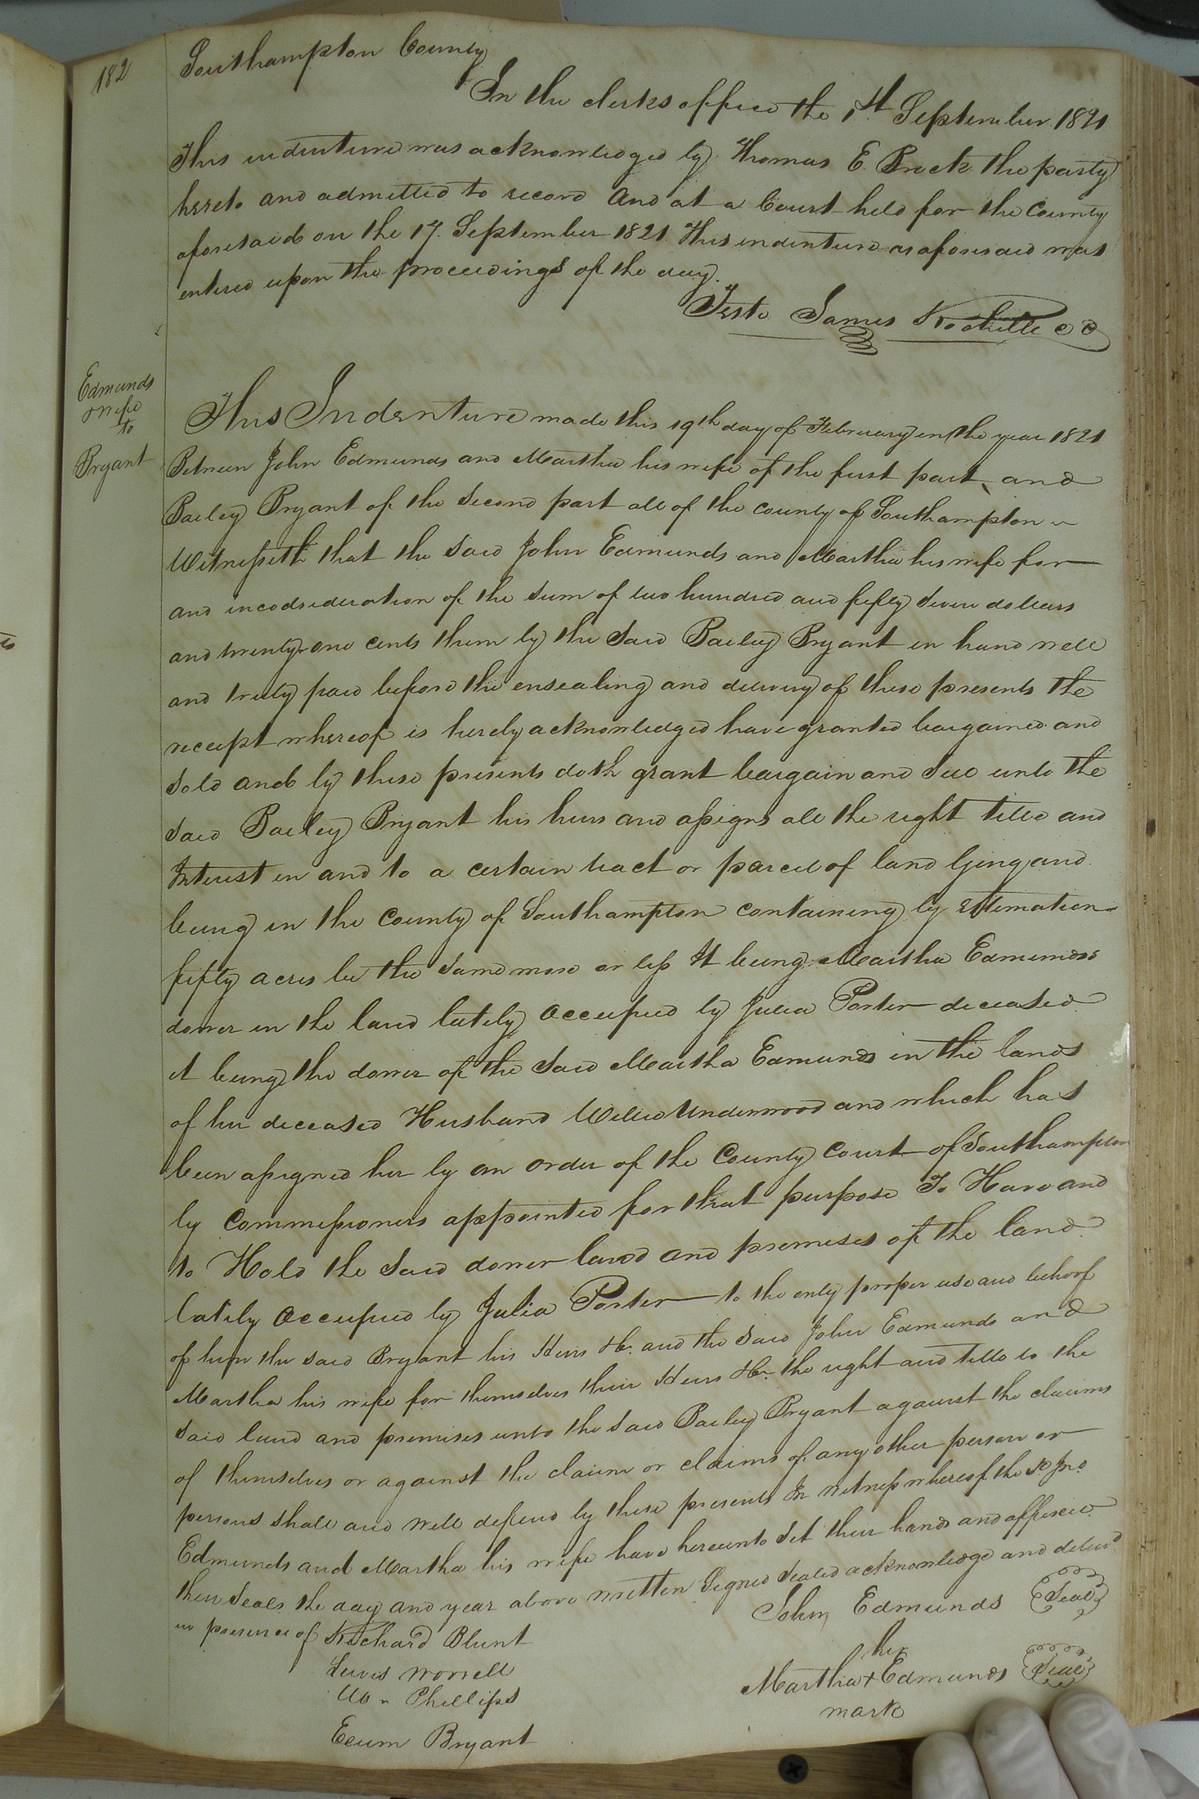 182
Southampton County
In the clerks office the 1st September 1821
This indenture was acknowledged by Thomas E Brock the party
hereto and admitted to record And at a Court held for the County
aforesaid on the 17. September 1821 This indenture as aforesaid was
entered upon the proceedings of the day.
Teste James Rochelle CC
Edmunds
& wife
to
Bryant
This Indenture made this 19th day of February in the year 1821
Between John Edmunds and Martha his wife of the first part and
Bailey Bryant of the Second part all of the county of Southampton
Witnesseth that the Said John Edmunds and Martha his wife for
and incodsideration of the Sum of two hundred and fifty Seven dollars
and twenty one cents them by the Said Bailey Bryant in hand well
and truly paid before the ensealing and delivery of these presents the
receipt whereof is hereby acknowledged have granted bargained and
Sold and by these presents doth grant bargain and Sell unto the
Said Bailey Bryant his heirs and assigns all the right title and
Interest in and to a certain tract or parcel of land lying and
being in the County of Southampton containing by estemation
fifty acres be the Same more or less It being Martha Edmundss
dower in the land lately occupied by Julia Porter deceased
it being the dower of the Said Martha Edmunds in the lands
of her deceased Husband Willie Underwood and which has
been assigned her by an order of the County Court of Southampton
by Commissioners appointed for that purpose To Have and
to Hold the Said dower land and premises of the land
lately Occupied by Julia Porter to the only proper use and behoof
of him the said Bryant his Heirs &c. and the Said John Edmunds and
Martha his wife for themselves their Heirs &c. the right and title to the
Said land and premises unto the Said Bailey Bryant against the claims
of themselves or against the claim or claims of any other person or
persons Shall and will defend by these presents In witness whereof the sd Jno
Edmunds and Martha his wife have hereunto Set their hands and affixed
their Seals the day and year above written Signed Sealed acknowledge and deliv'd
in presence of Richard Blunt
John Edmunds Seal
Lewis Worrell
her
Wm Phillips
Martha + Edmunds Seal
mark
Bryant